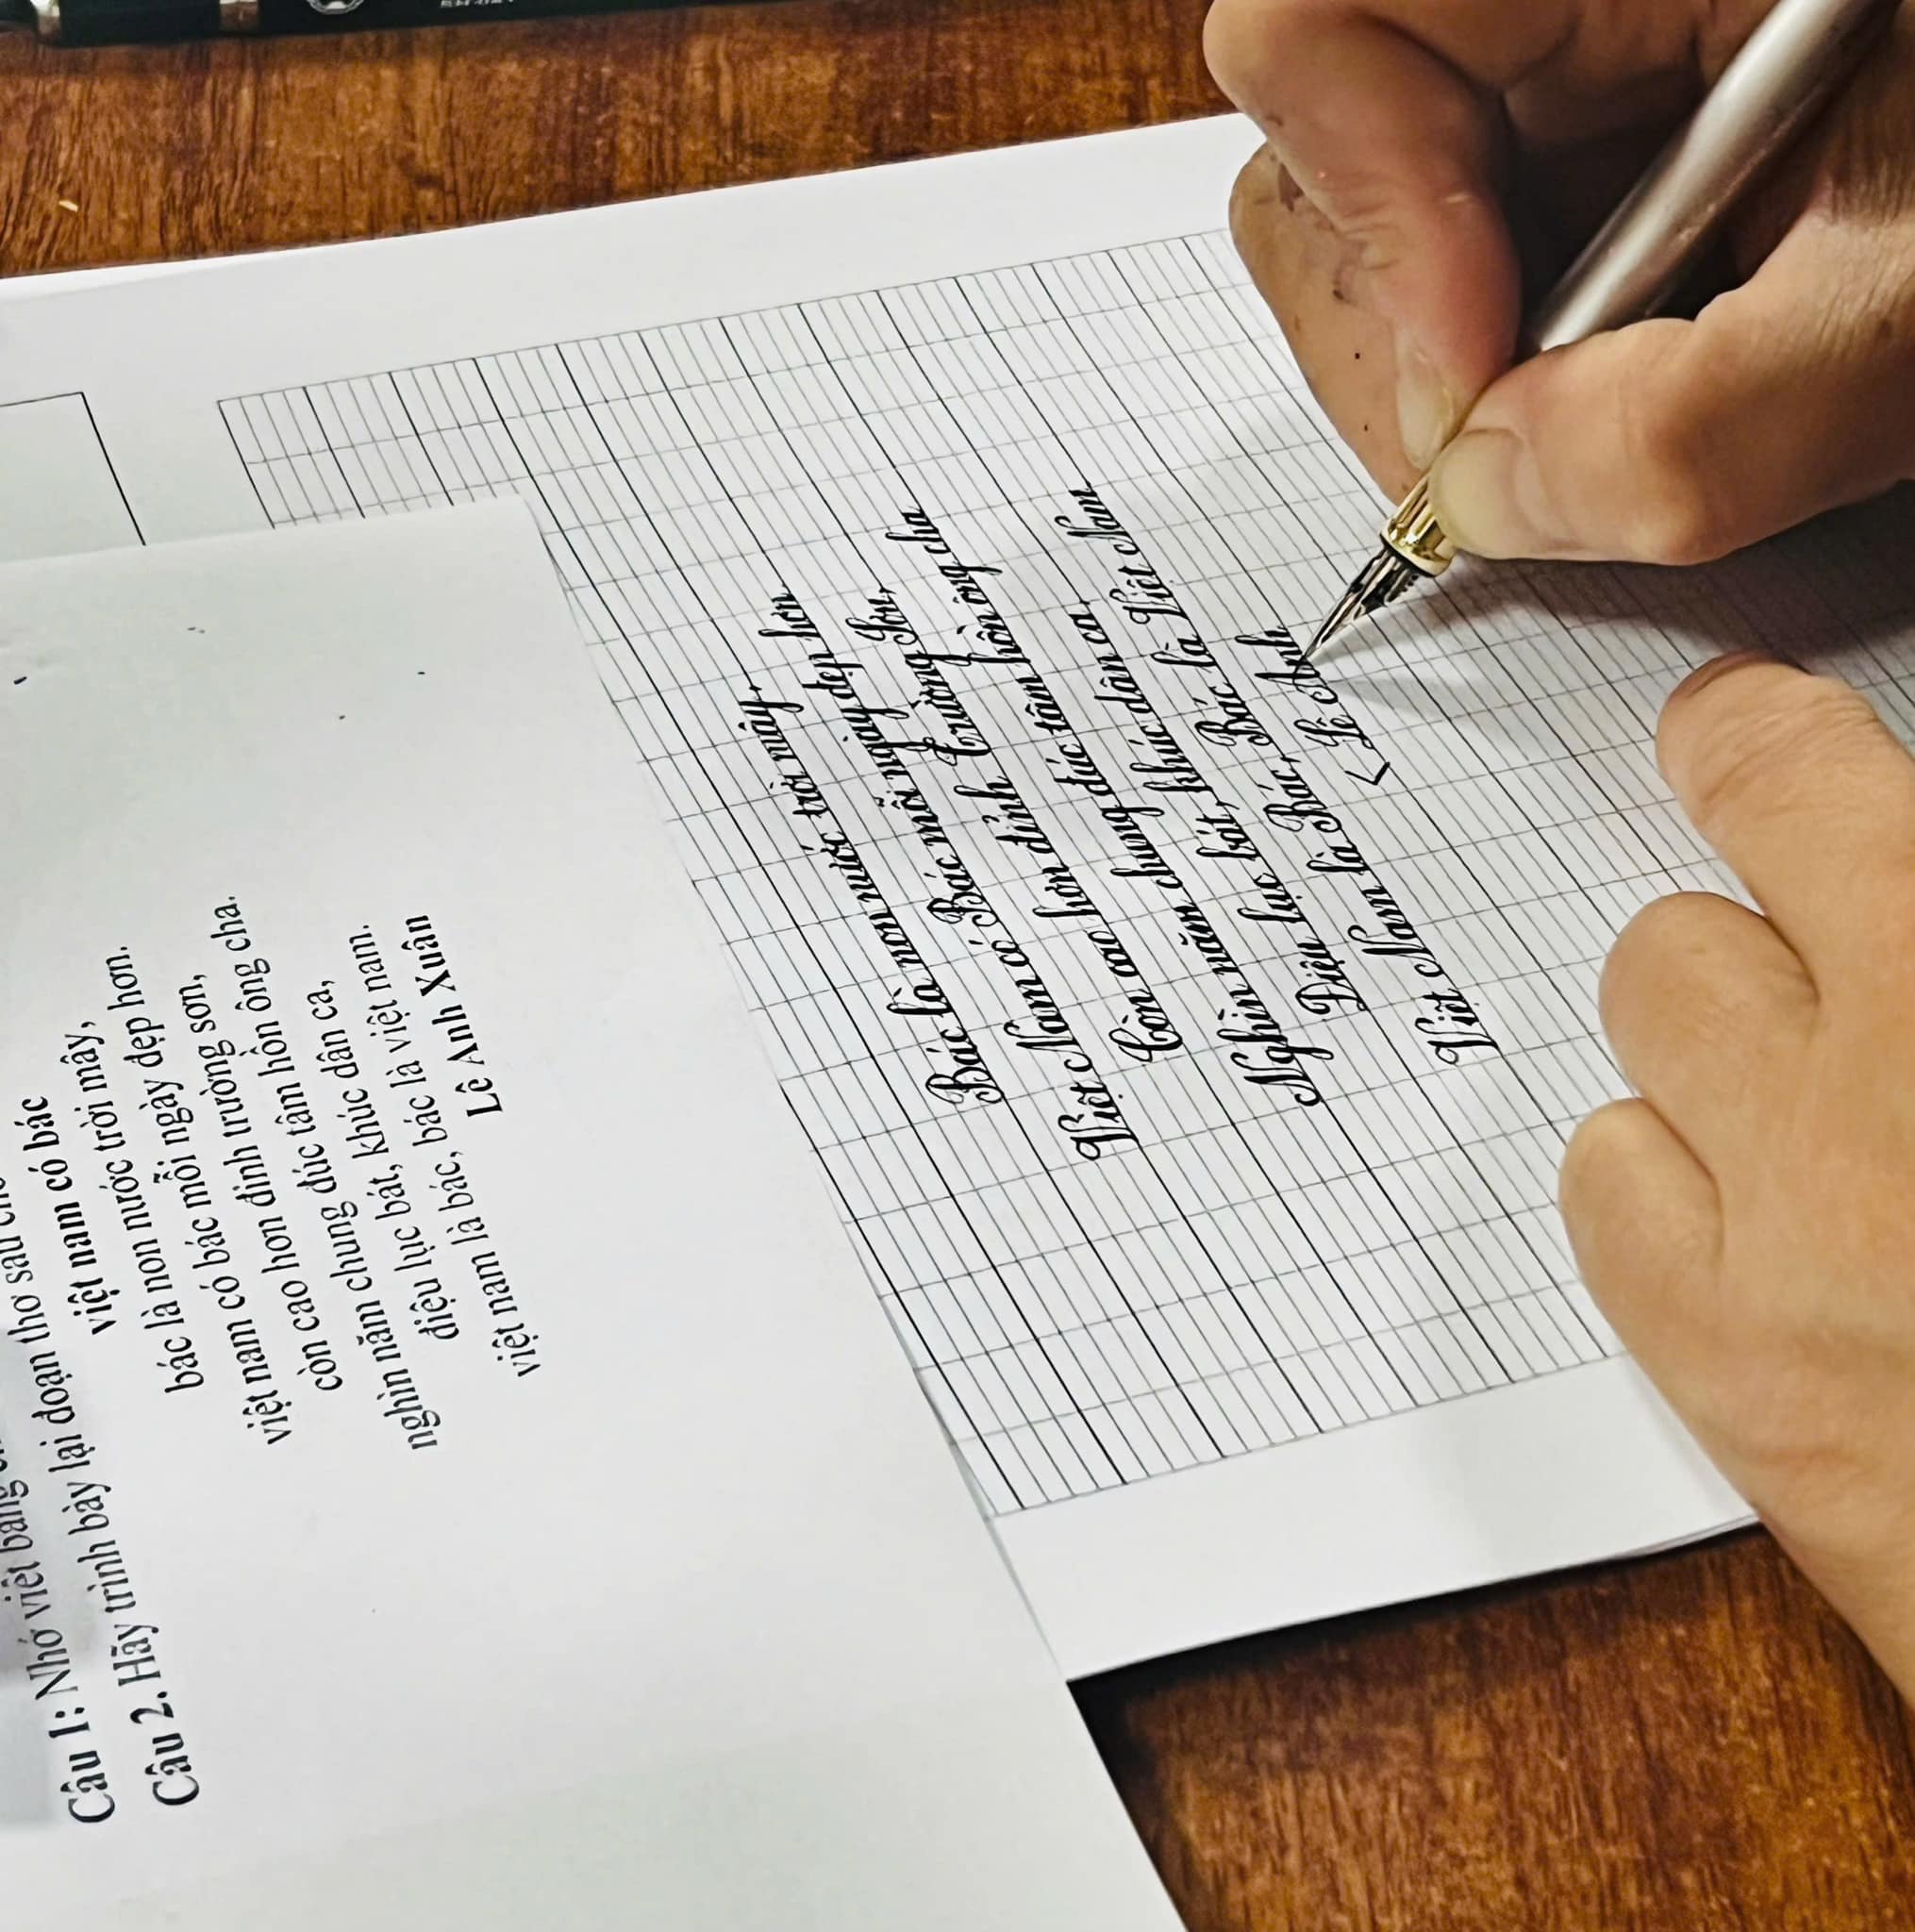 Câu 1: Nhớ viết bằng
Câu 2. Hãy trình bày lại đoạn thơ sau
việt nam có bác
việt nam có bác
bác là non nước trời mây,
việt nam có bác mỗi ngày đẹp hơn.
còn cao hơn đỉnh trường sơn,
nghìn năm chung đúc tâm hồn ông cha.
điệu lục bát, khúc dân ca,
việt nam là bác, bác là việt nam.
Lê Anh Xuân
Bác là non nước trời mây,
Việt Nam có Bác mỗi ngày đẹp hơn.
Còn cao hơn đỉnh Trường Sơn,
Nghìn năm chung đúc tâm hồn ông cha.
Điệu lục bát, khúc dân ca,
Việt Nam là Bác, Bác là Việt Nam.
< Lê Anh